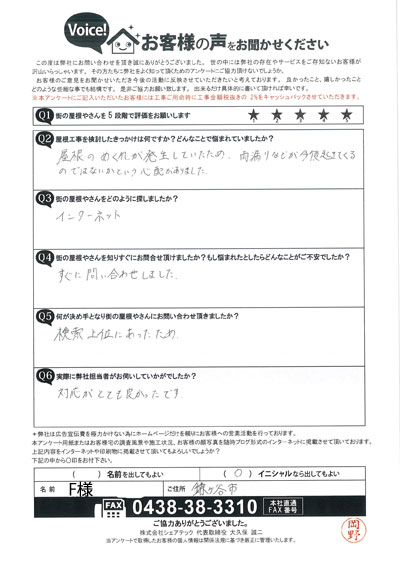 Voice! お客様の声をお聞かせください
この度は弊社にお問い合わせを頂き誠にありがとうございました。世の中には弊社の存在やサービスをご存知ないお客様が
沢山いらっしゃいます。その方たちに弊社をよく知って頂くためのアンケートにご協力頂けないでしょうか。
お客様のご意見をお聞かせいただき今後の活動に反映させていただきたいと考えております。良かったこと、嬉しかったこと
どのような些細な事でも結構です。是非ご協力お願い致します。出来るだけ具体的に書いて頂ければ幸いです。
※本アンケートにご記入いただいたお客様には工事ご用命時に工事金額税抜きの 2%をキャッシュバックさせていただきます。
Q1 街の屋根やさんを5段階で評価をお願いします ★ ★ ★ ★ ★
Q2 屋根工事を検討したきっかけは何ですか?どんなことで悩まれていましたか?
屋根のめくれが発生していたため、雨漏りなどが今後起きてくる
のではないかという心配がありました。
Q3 街の屋根やさんをどのように探しましたか?
インターネット
Q4 街の屋根やさんを知りすぐにお問合せ頂けましたか?もし悩まれたとしたらどんなことがご不安でしたか?
すぐに問い合わせしました。
Q5 何が決め手となり街の屋根やさんにお問い合わせ頂きましたか?
検索上位にあったため
Q6 実際に弊社担当者がお伺いしていかがでしたか?
対応がとても良かったです
*弊社は広告宣伝費を極力かけない為にホームページだけを頼りにお客様への営業活動を行っております。
本アンケート用紙またはお客様宅の調査風景や施工状況、お客様の顔写真を随時ブログ形式のインターネットに掲載させて頂いております。
上記内容をインターネットや印刷物に掲載させて頂いてもよろしいでしょうか?
下記の中から〇印をお付け下さい。
( ) 名前を出してもよい ( 〇 ) イニシャルなら出してもよい
名前 F様 ご住所 鎌ヶ谷市
FAX 0438-38-3310 本社直通 FAX番号
ご協力ありがとうございました。
株式会社シェアテック 代表取締役 大久保 誠二
当アンケートで取得したお客様の個人情報は関係法規に基づき厳正に管理いたします。
岡野